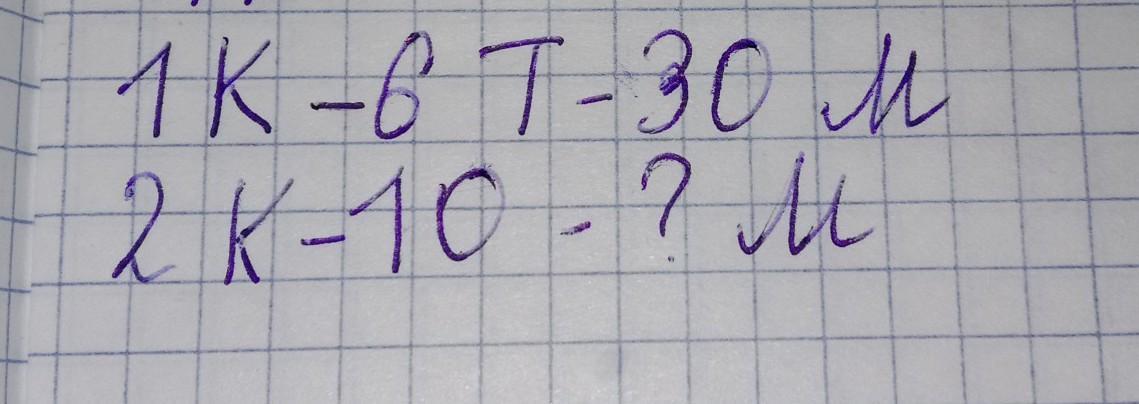 1 К - 6 Т - 30 м
2 К - 10 - ? м